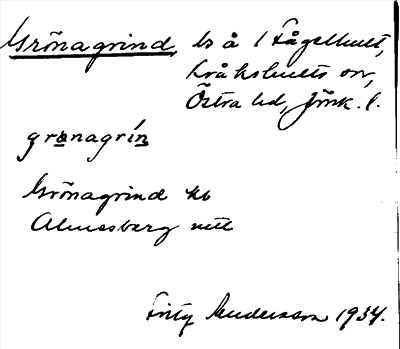 Grönagrind ls å 1 Fågelhult,
Kråkshults sn,
Östra hd, Jönk. l.
grønagrín
Grönagrind kb
Almesberg mtl
Fritz Andersson 1934.